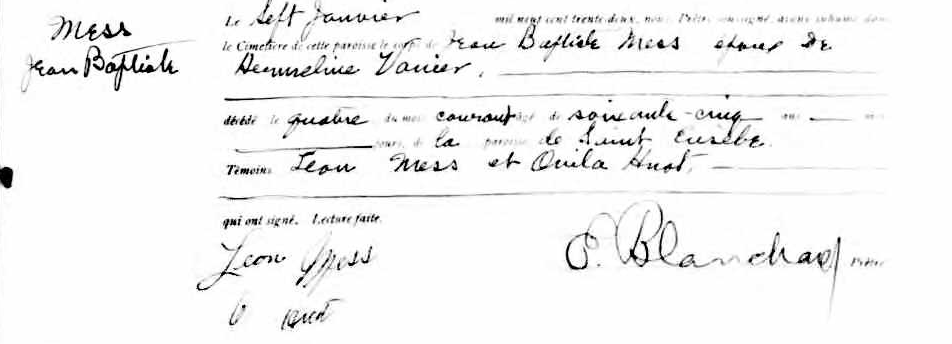 Mess
Jean Baptiste
Le Sept Janvier mil neuf cent trente-deux, nous, Prêtre soussigné, avons inhumé dans
le Cimetière de cette paroisse le corps de Jean Baptiste Mess époux de
Vanier,
décédé le quatre du mois courant âgé de soixante-cinq ans mois
jours, de la paroisse de Saint Eusèbe.
Témoins Léon Mess et Ovila Huot,
qui ont signé. Lecture faite.
Leon Mess
O